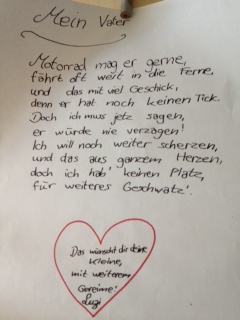 Mein Vater
Motorrad mag er gerne,
fährt oft weit in die Ferne,
und das mit viel Geschick,
denn er hat noch keinen Tick.
Doch ich muss jetz sagen,
er würde nie verzagen!
Ich will noch weiter scherzen,
und das aus ganzem Herzen,
doch ich hab' keinen Platz,
für weiteres Geschwatz'.
Das wünscht dir deine
kleine,
mit weiterem
Gereime!
Luzi